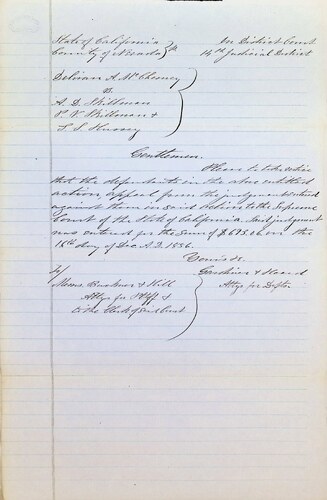 State of California } In District Court
County of Nevada } ss 14th Judicial District
A. McChesney
vs
A. D. Skillman
P. V. Skillman &
Gentlemen.
Please to take notice
that the defendants in the above entitled
action appeal from the judgment entered
against them in said action to the Supreme
Court of the State of California. Said judgment
was entered for the sum of on the
16th day of Dec A.D. 1856.
Yours &c.
To
Messrs & Hill
Attys for Plff &
to the Clerk of said Court
&
Attys for Defts